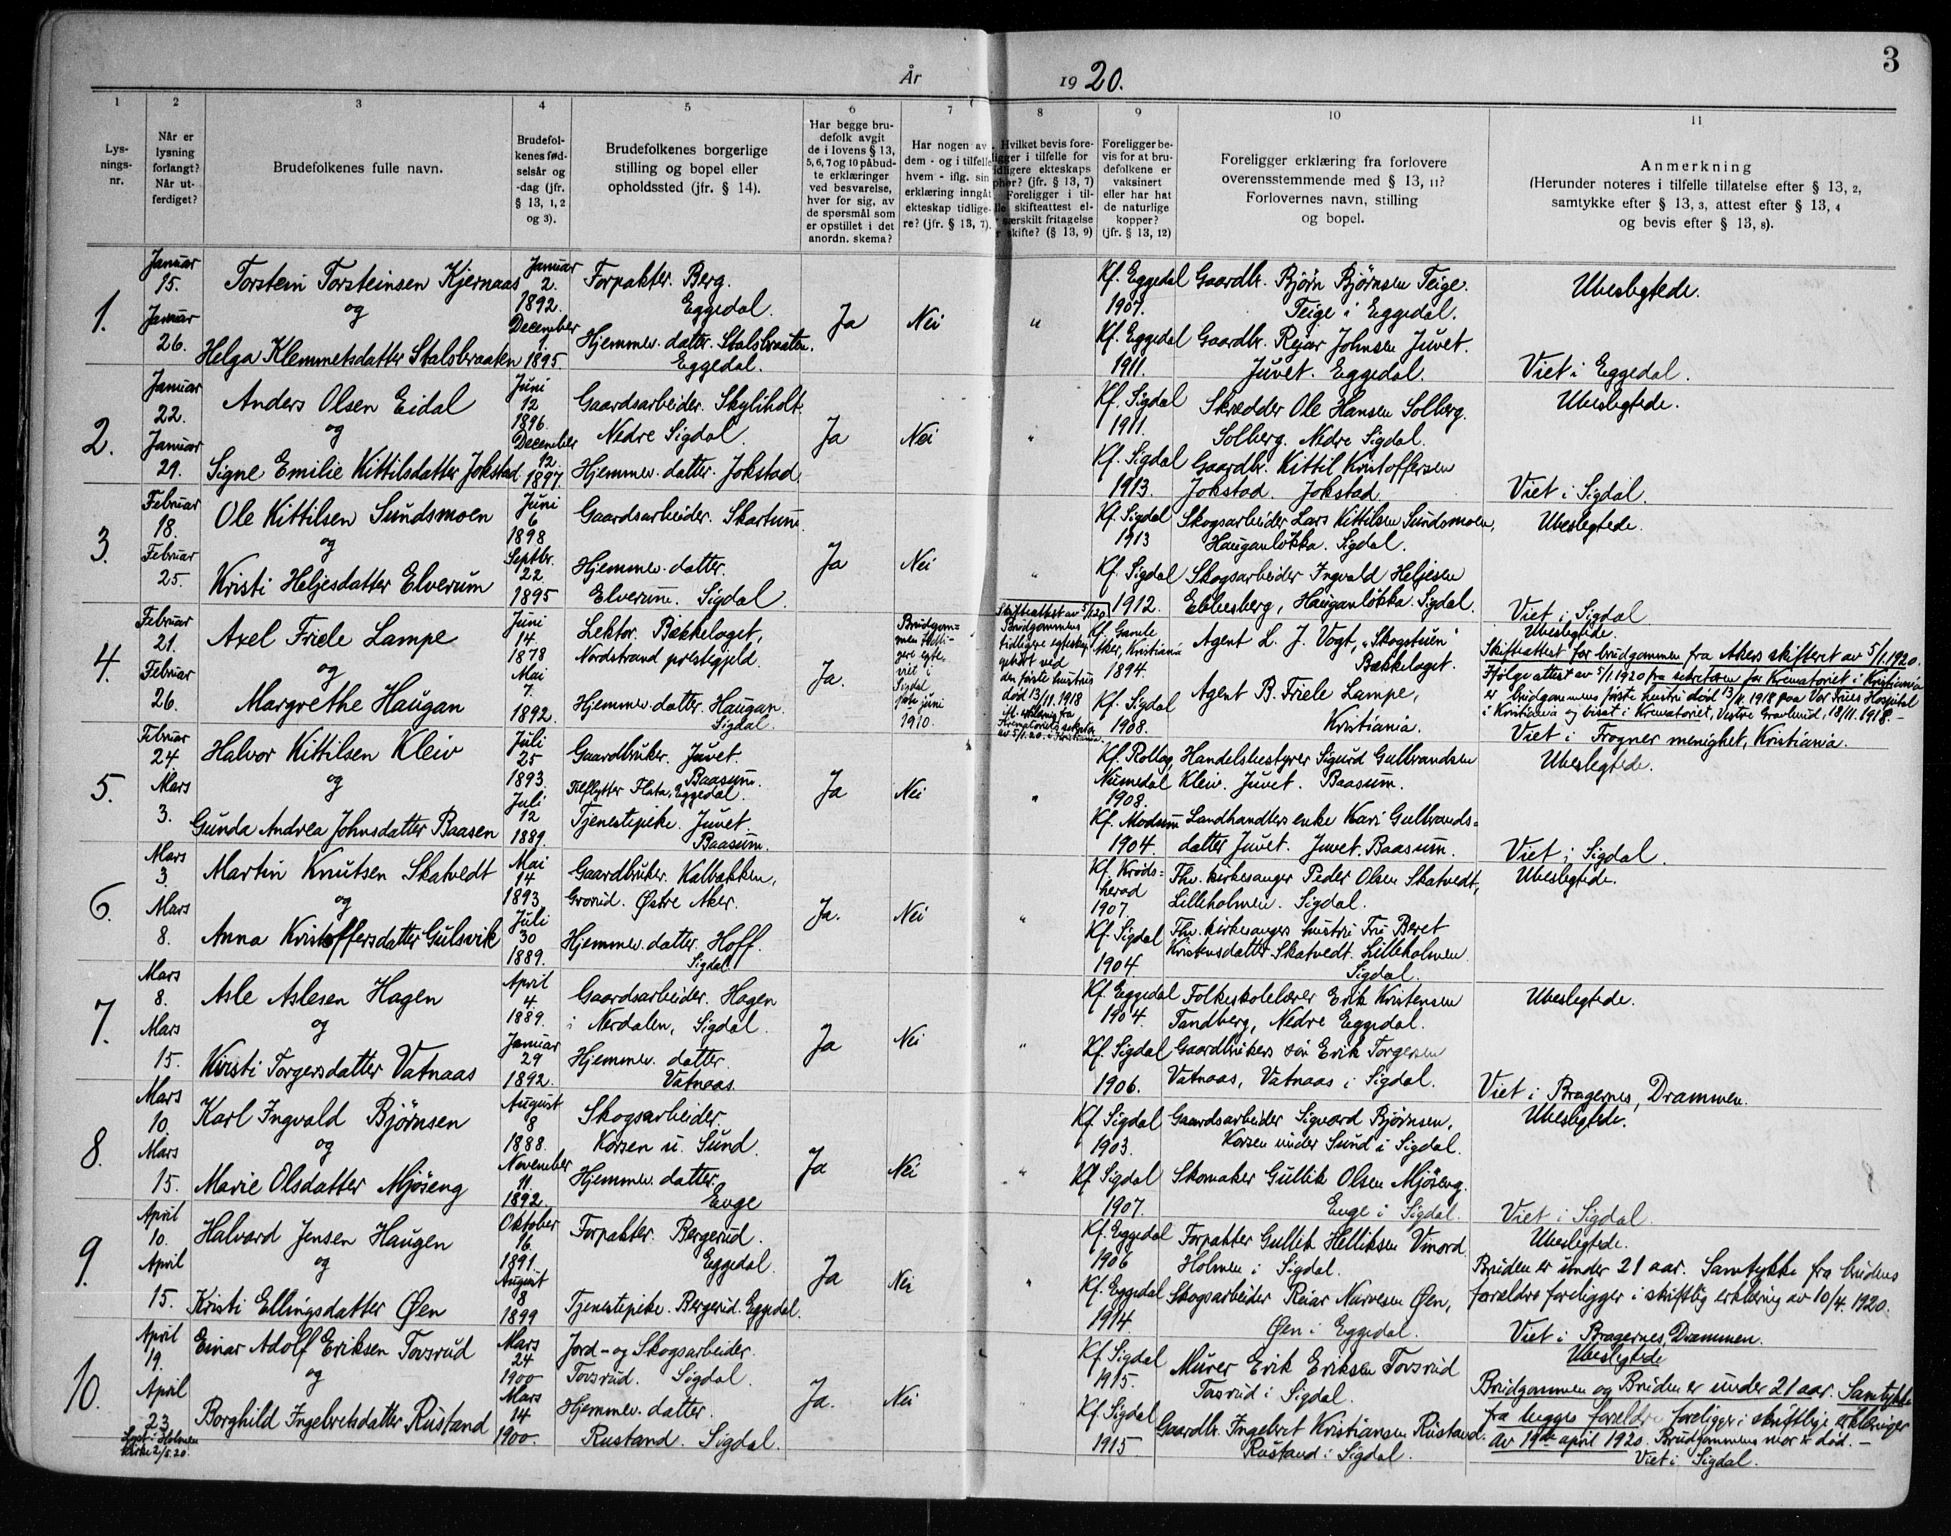 3
År 1920.
1 2 3 4 5 6 7 8 9 10 11
Lys-
nings-
nr.
Når er
lysning
forlangt?
Når ut-
ferdiget?
Brudefolkenes fulle navn.
Brudefol-
kenes fød-
selsår og
-dag (jfr.
§ 13, 1, 2
og 3).
Brudefolkenes borgerlige
stilling og bopel eller
opholdssted (jfr. § 14).
Har begge bru-
defolk avgit
de i lovens § 13,
5, 6, 7 og 10 påbud-
te erklæringer
ved besvarelse,
hver for sig, av
de spørsmål som
er opstillet i det
anordn. skema?
Har nogen av
dem - og i tilfelle
hvem - iflg. sin
erklæring inngåt
ekteskap tidlige-
re? (jfr. § 13, 7).
Hvilket bevis fore-
ligger i tilfelle for
tidligere ekteskaps
ophør? (jfr. § 13, 7)
Foreligger i til-
felle skifteattest el-
særskilt fritagelse
skifte? (§ 13, 9)
Foreligger be-
vis for at bru-
defolkene er
vaksinert
eller har hat
de naturlige
kopper?
(jfr. § 13, 12)
Foreligger erklæring fra forlovere
overensstemmende med § 13, 11?
Forlovernes navn, stilling
og bopel.
Anmerkning
(Herunder noteres i tilfelle tillatelse efter § 13, 2,
samtykke efter § 13, 3, attest efter § 13, 4
og bevis efter § 13, 8).
1.
Januar
15.
Januar
26.
Torstein Torsteinsen Kjernaas
og
Helga Klemmetsdatter Stalsbraaten
Januar
2.
1892.
December
1.
1895.
Forpakter. Berg.
Eggedal.
Hjemmev. datter. Stalsbraaten.
Eggedal.
Ja
Nei
"
Kf. Eggedal
1907.
Kf. Eggedal
1911.
Gaardbr. Bjørn Bjørnsen Teige.
Teige i Eggedal.
Gaardbr. Reiar Johnsen Juvet.
Juvet. Eggedal.
Ubeslegtede.
Viet i Eggedal.
2.
Januar
22.
Januar
29.
Anders Olsen Eidal
og
Signe Emilie Kittilsdatter Jokstad
Juni
12
1896.
December
12.
1897.
Gaardsarbeider. Skyliholt.
Nedre Sigdal.
Hjemmev. datter. Jokstad
Ja
Nei
"
Kf. Sigdal
1911.
Kf. Sigdal
1913.
Skrædder Ole Hansen Solberg.
Solberg. Nedre Sigdal.
Gaardbr. Kittil Kristoffersen
Jokstad. Jokstad
Ubeslegtede.
Viet i Sigdal.
3.
Februar
18.
Februar
25.
Ole Kittilsen Sundsmoen
og
Kristi Heljesdatter Elverum
Juni
6
1898
Septbr.
22.
1895
Gaardsarbeider. Skartum.
Hjemmev. datter.
Elverum. Sigdal.
Ja
Nei
"
Kf. Sigdal
1913
Kf. Sigdal
1912.
Skogsarbeider Lars Kittilsen Sundsmoen,
Hauganløkka. Sigdal.
Skogsarbeider Ingvald Heljesen
Ebbesberg, Hauganløkka. Sigdal.
Ubeslegtede.
Viet i Sigdal
4.
Februar
21.
Februar
26.
Axel Friele Lampe
og
Margrethe Haugan
Juni
14.
1878
Mai
7.
1892.
Lektor. Bækkelaget,
Nordstrand prestegjeld.
Hjemmev. datter. Haugan.
Sigdal.
Ja.
Brudgom-
men tidli-
gere egte-
viet i
Sigdal
juni
1910.
Skifteattest av 5/1 20.
Brudgommens
tidligere egteskap
ophørt ved
den første hustrus
død 13/11. 1918
av 5/1. 20.
Kf. Gamle
Aker, Kristiania
1894.
Kf. Sigdal
1908.
Agent L. J. Vogt, "Skogstuen"
Bækkelaget.
Agent B. Friele Lampe,
Kristiania.
Ubeslegtede.
Skifteattest for brudgommen fra Akers skifteret av 5/1. 1920.
Ifølge attest av 5/1. 1920 fra sekretæren for Krematoriet i Kristiania
er brudgommens første hustru død 13/11. 1918 paa Vor Frues Hospital
i Kristiania og bisat i Krematoriet, Vestre Gravlund, 18/11. 1918. -
Viet i Frogner menighet, Kristiania.
5.
Februar
24.
Mars
3.
Halvor Kittilsen Kleiv
og
Gunda Andrea Johnsdatter Baasen
Juli
25
1893.
Juli
12
1889.
Gaardbruker. Juvet.
Baasum.
Tilflytter Flata, Eggedal.
Tjenestepike. Juvet
Baasum.
Ja
Nei
"
Kf. Rollag,
Numedal
1908.
Kf. Modum
1904.
Handelsbestyrer Sigurd Gulbrandsen
Kleiv. Juvet. Baasum.
Landhandlers enke Kari Gulbrands=
datter Juvet. Juvet. Baasum.
Ubeslegtede.
Viet i Sigdal.
6.
Mars
3.
Mars
8.
Martin Knutsen Skatvedt
og
Anna Kristoffersdatter Gulsvik
Mai
14
1893.
Juli
30
1889.
Gaardbruker. Kalbakken,
Grorud. Østre Aker.
Hjemmev. datter. Hoff.
Sigdal
Ja.
Nei
"
Kf. Krøds=
herad
1907.
Kf. Sigdal
1904
Fhv. kirkesanger Peder Olsen Skatvedt,
Lilleholmen. Sigdal.
Fhv. kirkesangers hustru Fru Beret
Kristensdatter Skatvedt. Lilleholmen.
Sigdal.
Ubeslegtede.
7.
Mars
8.
Mars
15.
Asle Aslesen Hagen
og
Kristi Torgersdatter Vatnaas
April
4.
1889.
Januar
29
1892.
Gaardsarbeider. Hagen
i Nerdalen, Sigdal.
Hjemmev. datter.
Vatnaas.
Ja
Nei
"
Kf. Eggedal
1904.
Kf. Sigdal
1906.
Folkeskolelærer Erik Kristensen
Tandberg, Nedre Eggedal.
Gaardbrukers søn Erik Torgersen
Vatnaas, Vatnaas i Sigdal.
Ubeslegtede.
Viet i Bragernes, Drammen.
8.
Mars
10.
Mars
15.
Karl Ingvald Bjørnsen
og
Marie Olsdatter Mjøseng
August
8
1888.
November
11.
1892.
Skogsarbeider.
Korsen u. Sund.
Hjemmev. datter.
Enge
Ja
Nei
"
Kf. Sigdal
1903.
Kf. Sigdal
1907.
Gaardsarbeider Sigvard Bjørnsen,
Korsen under Sund i Sigdal.
Skomaker Gullik Olsen Mjøseng.
Enge i Sigdal.
Ubeslegtede.
Viet i Sigdal.
9.
April
10.
April
15.
Halvard Jensen Haugen
og
Kristi Ellingsdatter Øen
Oktober
16.
1891.
August
8
1899
Forpakter. Bergerud.
Eggedal.
Tjenestepike. Bergerud. Eggedal.
Ja
Nei
"
Kf. Eggedal
1906
Kf. Eggedal
1914.
Forpakter Gullik Helliksen Vinord
Holmen i Sigdal.
Skogsarbeider Reiar Narvesen Øen,
Øen i Eggedal.
Ubeslegtede.
Bruden er under 21 aar. Samtykke fra brudens
forældre foreligger i skriftlig erklæring av 10/4. 1920.
Viet i Bragernes, Drammen.
10.
April
19.
April
23
Lyst i Holmen
kirke 2/5. 20.
Einar Adolf Eriksen Tovsrud
og
Borghild Ingebretsdatter Rustand
Mars
24
1900
Mars
14
1900.
Jord- og Skogsarbeider.
Tovsrud. Sigdal.
Hjemmev. datter.
Rustand. Sigdal.
Ja.
Nei
"
Kf. Sigdal
1915.
Kf. Sigdal
1915
Murer Erik Eriksen Tovsrud
Tovsrud i Sigdal.
Gaardbr. Ingebret Kristiansen Rustand.
Rustand i Sigdal.
Ubeslegtede
Brudgommen og Bruden er under 21 aar. Samtykke
fra begges forældre foreligger i skriftlige erklæringer
av 19de april 1920. Brudgommens mor er død. -
Viet i Sigdal.